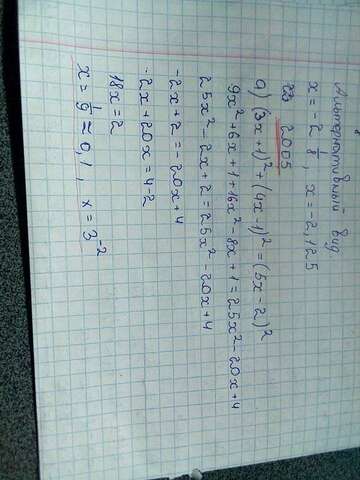 Альтернативный вид
x = -2 1/8, x = -2,125
2005
а) (3x+1)² + (4x-1)² = (5x-2)²
9x² + 6x + 1 + 16x² - 8x + 1 = 25x² - 20x + 4
25x² - 2x + 2 = 25x² - 20x + 4
-2x + 2 = -20x + 4
-2x + 20x = 4 - 2
18x = 2
x = 1/9 ≈ 0,1, x = 3⁻²